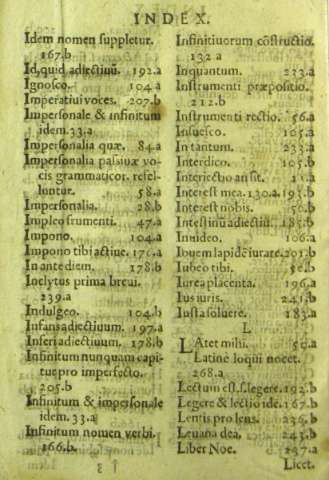 INDEX.
Idem nomen suppletur.
167.b
Id, quid adiectiuū. 192.a
Ignosco. 104.a
Imperatiui voces. 207.b
Impersonale & infinitum
idem. 33.a
Impersonalia quæ. 84.a
Impersonalia passiuæ vo-
cis grammaticor. refel-
luntur. 58.a
Impersonalia. 28.b
Impleo frumenti. 47.a
Impono. 104.a
Impono tibi actiue. 170.a
In ante diem. 178.b
Inclytus prima breui.
239.a
Indulgeo. 104.b
Infans adiectiuum. 197.a
Inferi adiectiuum. 178.b
Infinitum nunquam capi-
tur pro imperfecto.
205.b
Infinitum & impersonale
idem. 33.a
Infinitum nomen verbi.
166.b.
Infinitiuorum cōstructio.
132 a
Inquantum. 233.a
Instrumenti præpositio.
212.b
Instrumenti rectio. 56.a
Insuesco. 105.a
In tantum. 233.a
Interdico. 105.b
Interiectio an sit. 10.a
Interest mea. 130.a. 193.b
Interest nobis. 56.b
Intestinū adiectiū. 185.b
Inuideo. 106.a
Iouem lapidē iurare. 201.b
Iubeo tibi. 50.b
Iurea placenta. 196.a
Ius iuris. 241.b
Iusta soluere. 183.a
L
LAtet mihi. 59.a
Latinè loqui nocet.
268.a
Lectum est, s. legere. 192.b
Legere & lectio idē. 167.b
Lentis pro lens. 236.b
Leuana dea. 243.b
Liber Noe. 237.a
Licet.